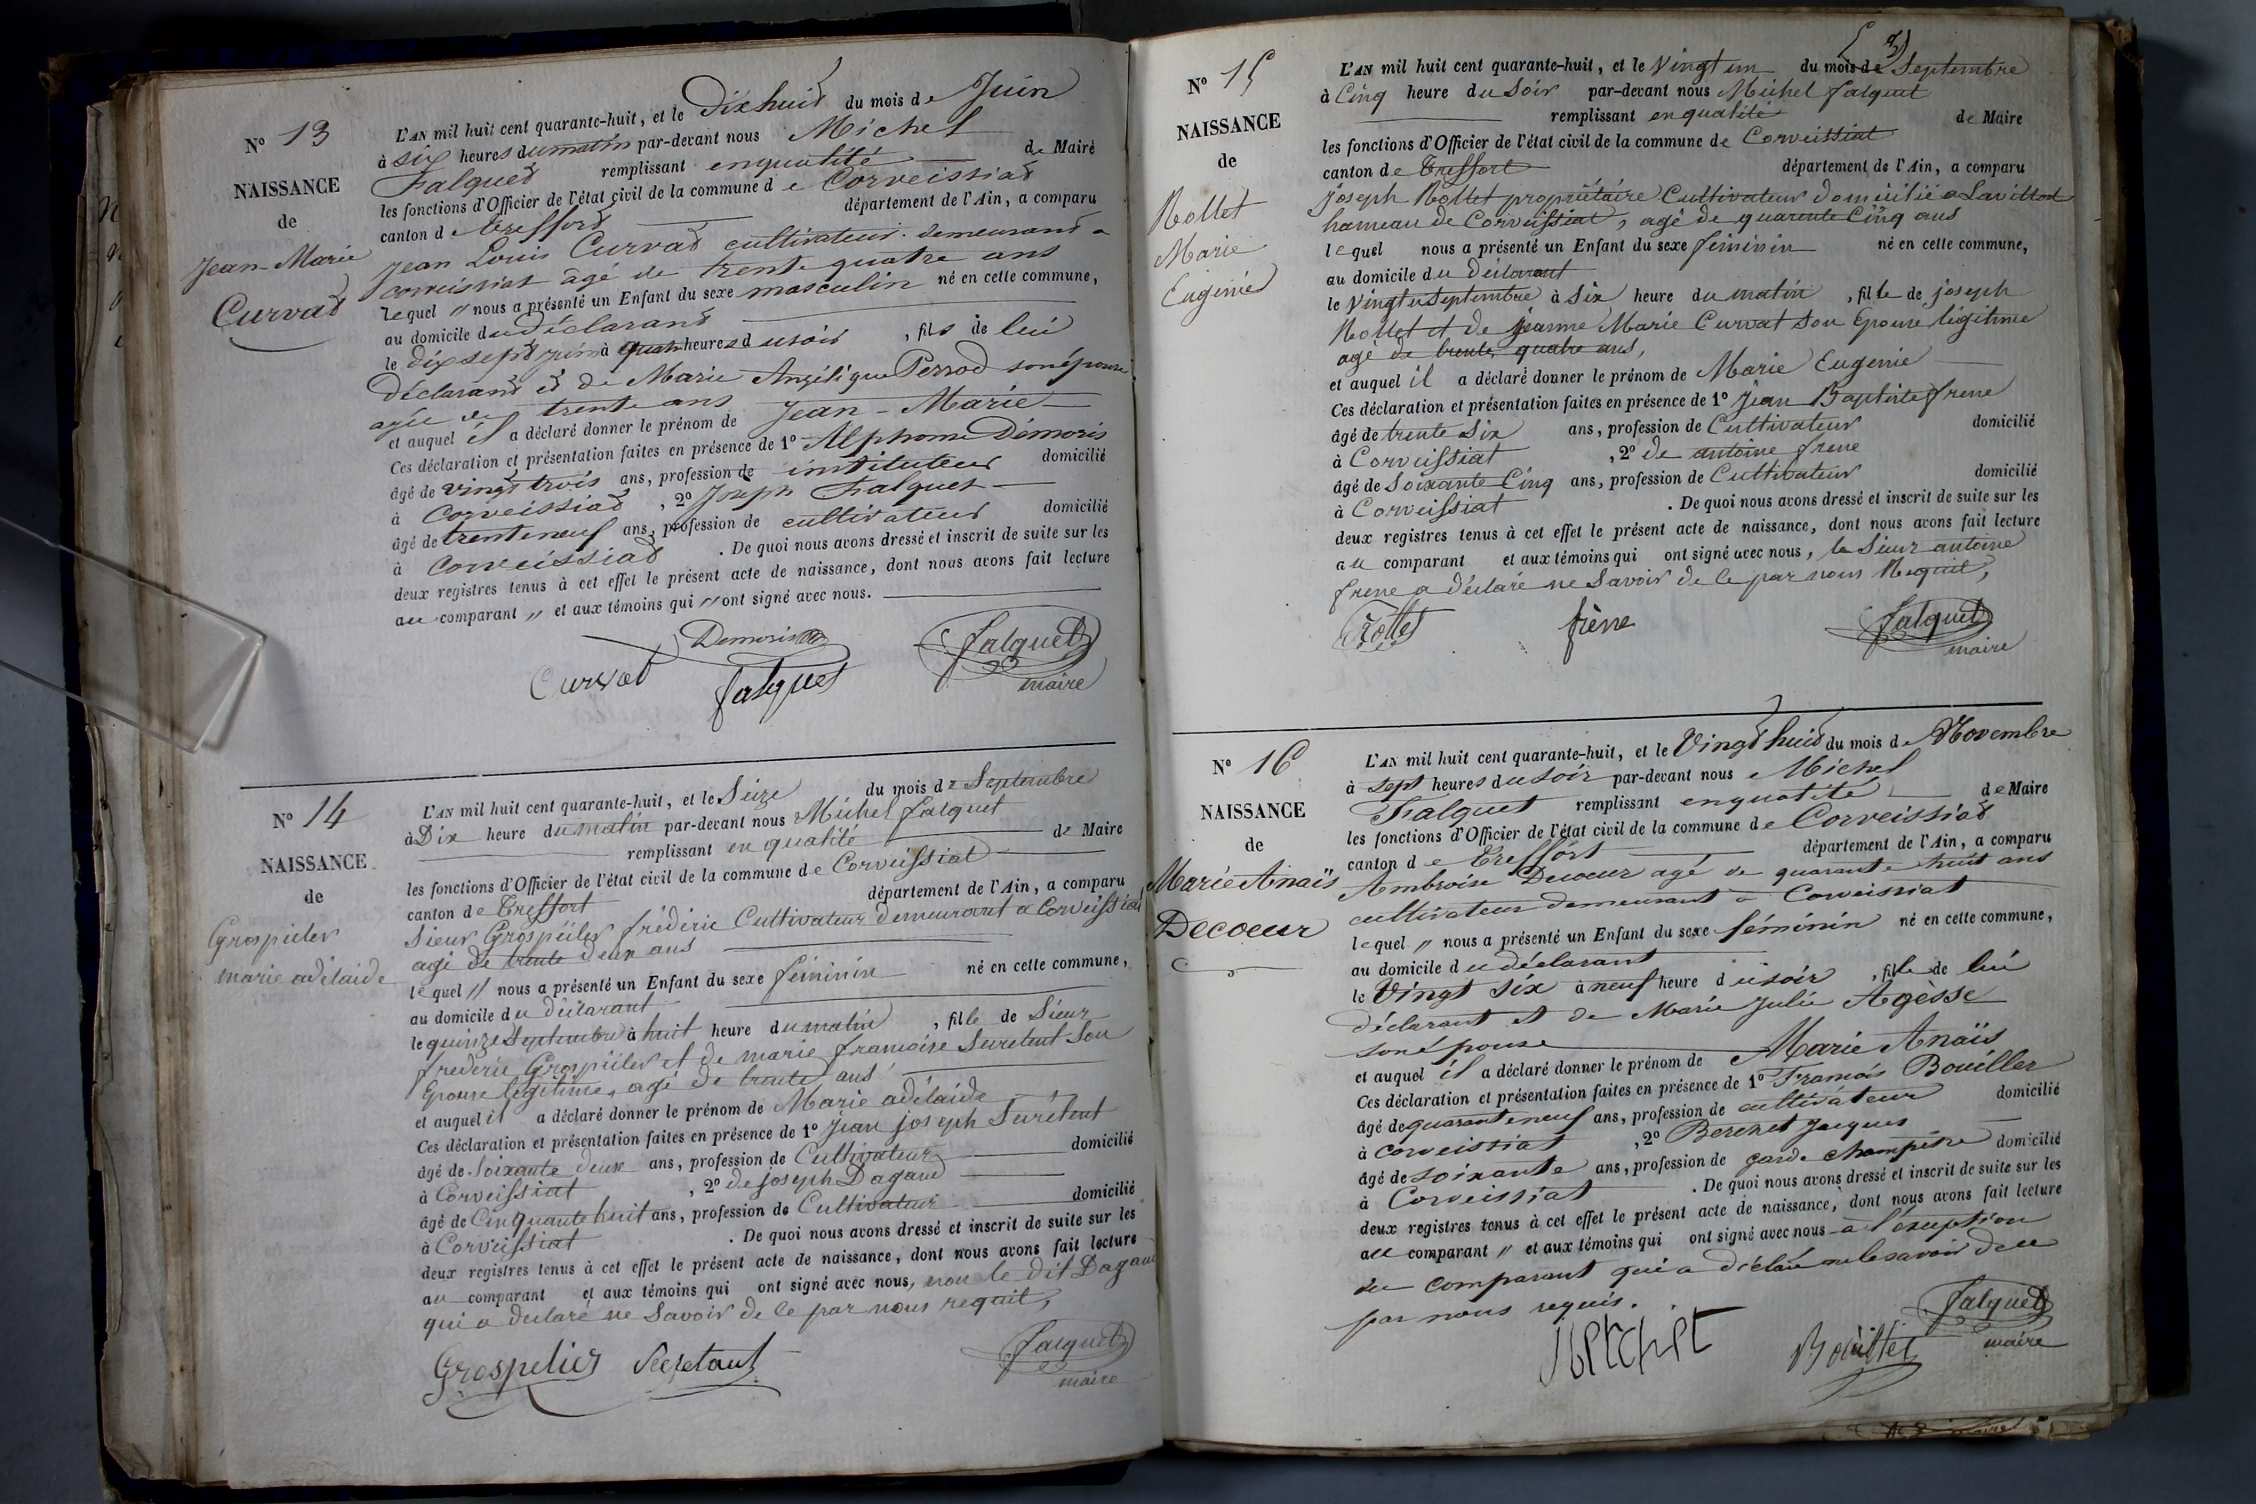 N° 13
NAISSANCE
de
Jean-Marie
Curvat
L'AN mil huit cent quarante-huit, et le Dix huit du mois de Juin
à six heures du matin par-devant nous Michel
Falquet remplissant en qualité de Maire
les fonctions d'Officier de l'état civil de la commune de Corveissiat
canton de Treffort département de l'Ain, a comparu
Jean Louis Curvat cultivateur demeurant a
corveissiat âgé de trente quatre ans
lequel " nous a présenté un Enfant du sexe masculin né en cette commune,
au domicile du Déclarant
le dix sept juin à quatre heures du soir, fils de lui
Déclarant et de Marie Angélique Perrod son épouse
agée de trente ans
et auquel il a déclaré donner le prénom de Jean-Marie
Ces déclaration et présentation faites en présence de 1° Alphonse Démoris
âgé de vingt trois ans, profession de instituteur domicilié
à Corveissiat, 2° Joseph Falquet
âgé de trente neuf ans, profession de cultivateur domicilié
à Corveissiat. De quoi nous avons dressé et inscrit de suite sur les
deux registres tenus à cet effet le présent acte de naissance, dont nous avons fait lecture
au comparant " et aux témoins qui " ont signé avec nous.
Demoris
Curvat falquet falquet
maire
N° 14
NAISSANCE
de
Grospelier
marie adélaide
L'AN mil huit cent quarante-huit, et le Seize du mois de Septembre
à Dix heure du matin par-devant nous Michel falquet
remplissant en qualité de Maire
les fonctions d'Officier de l'état civil de la commune de Corveissiat
canton de Treffort département de l'Ain, a comparu
Sieur Grospelier fréderic Cultivateur demeurant a Corveissiat
agé de trente deux ans
lequel " nous a présenté un Enfant du sexe féminin né en cette commune,
au domicile du déclarant
le quinze Septembre à huit heure du matin, fille de Sieur
frederic Grospelier et de marie francoise Suretent Son
Epouse légitime, agé de trente ans
et auquel il a déclaré donner le prénom de Marie adélaide
Ces déclaration et présentation faites en présence de 1° Jean joseph Surétent
âgé de Soixante deux ans, profession de Cultivateur domicilié
à Corveissiat, 2° de joseph Dagand
âgé de Cinquante huit ans, profession de Cultivateur domicilié
à Corveissiat. De quoi nous avons dressé et inscrit de suite sur les
deux registres tenus à cet effet le présent acte de naissance, dont nous avons fait lecture
au comparant et aux témoins qui ont signé avec nous, non le dit Dagand
qui a declaré ne Savoir de ce par nous requit,
Grospelier falquet
maire
N° 15
NAISSANCE
de
Rollet
Marie
Eugenie
L'AN mil huit cent quarante-huit, et le Vingt un du mois de Septembre
à Cinq heure du Soir par-devant nous Michel falquet
remplissant en qualité de Maire
les fonctions d'Officier de l'état civil de la commune de Corveissiat
canton de Treffort département de l'Ain, a comparu
joseph Rollet propriétaire Cultivateur domicilié a Lavillat
hameau de Corveissiat, agé de quarante Cinq ans
lequel nous a présenté un Enfant du sexe féminin né en cette commune,
au domicile du déclarant
le Vingt Septembre à Six heure du matin, fille de joseph
Rollet et de jeanne Marie Curvat Son Epouse légitime
agé de trente quatre ans,
et auquel il a déclaré donner le prénom de Marie Eugenie
Ces déclaration et présentation faites en présence de 1° Jean Baptiste frene
âgé de trente Six ans, profession de Cultivateur domicilié
à Corveissiat, 2° de antoine frene
âgé de Soixante Cinq ans, profession de Cultivateur domicilié
à Corveissiat. De quoi nous avons dressé et inscrit de suite sur les
deux registres tenus à cet effet le présent acte de naissance, dont nous avons fait lecture
au comparant et aux témoins qui ont signé avec nous, le Sieur antoine
frene a déclaré ne Savoir de ce par nous Requit,
Rollet frène falquet
maire
N° 16
NAISSANCE
de
Marie Anaïs
Decoeur
L'AN mil huit cent quarante-huit, et le Vingt huit du mois de Novembre
à sept heures du soir par-devant nous Michel
Falquet remplissant en qualité de Maire
les fonctions d'Officier de l'état civil de la commune de Corveissiat
canton de Treffort département de l'Ain, a comparu
Ambroise Decoeur agé de quarante huit ans
cultivateur demeurant à Corveissiat
lequel " nous a présenté un Enfant du sexe féminin né en cette commune,
au domicile du déclarant
le Vingt six à neuf heure du soir, fille de lui
déclarant et de Marie Julie Agèsse
son épouse
et auquel il a déclaré donner le prénom de Marie Anaïs
Ces déclaration et présentation faites en présence de 1° François Bouiller
âgé de quarante neuf ans, profession de cultivateur domicilié
à corveissiat, 2° Berchet Jacques
âgé de soixante ans, profession de garde champêtre domicilié
à Corveissiat. De quoi nous avons dressé et inscrit de suite sur les
deux registres tenus à cet effet le présent acte de naissance, dont nous avons fait lecture
au comparant " et aux témoins qui ont signé avec nous à l'exception
du comparant qui a déclaré ne le savoir de ce
par nous requis.
falquet
maire